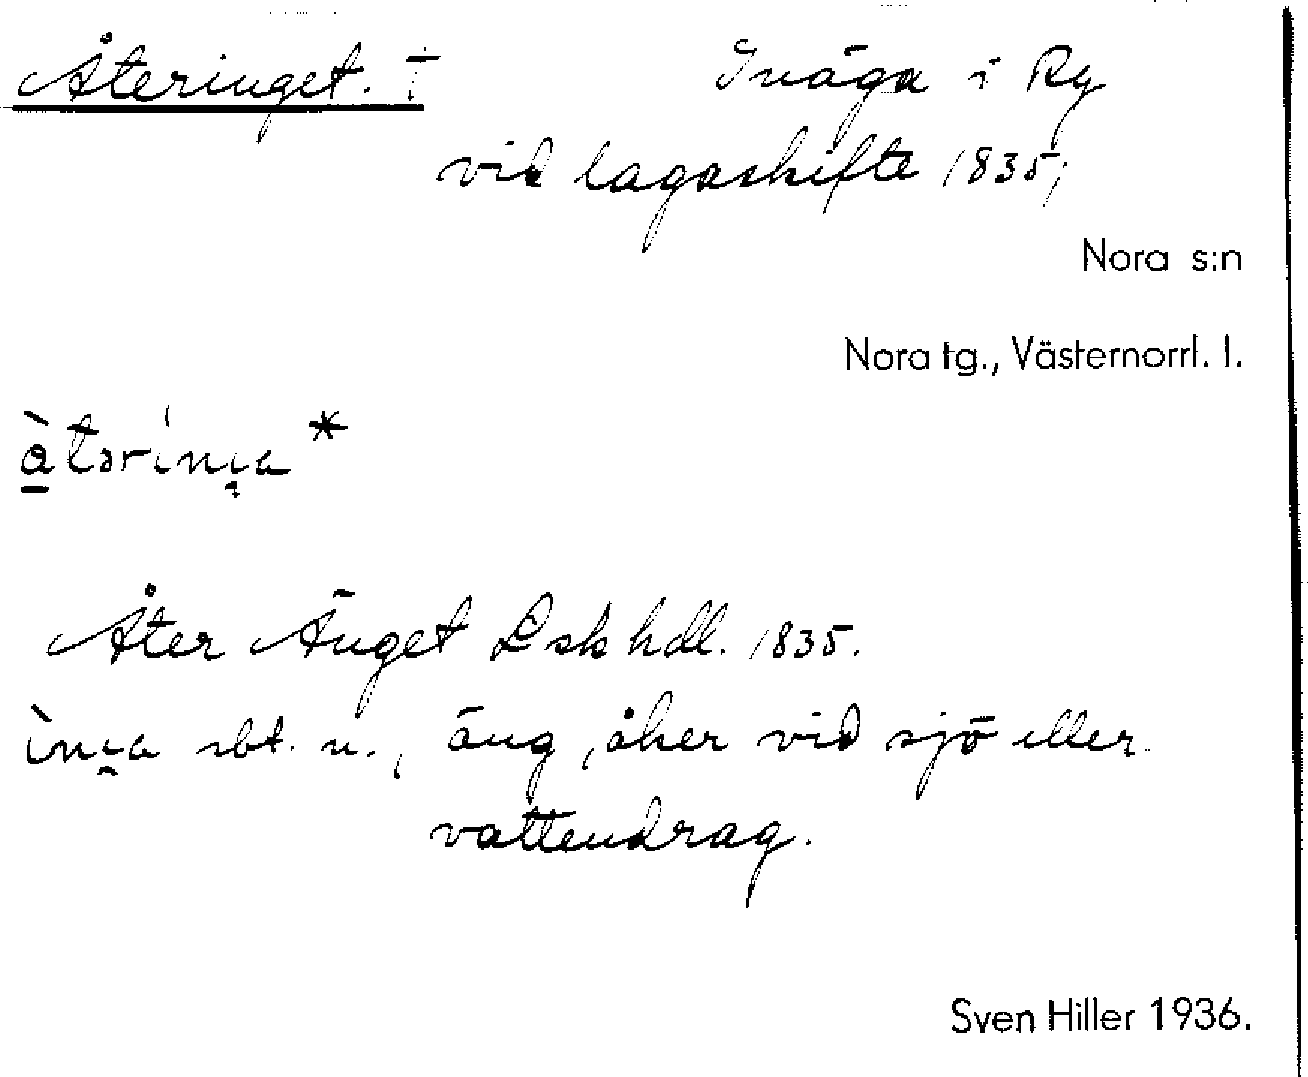 Återinget. † Inäga i Ry
vid lagaskifte 1835;
Nora s:n
Nora tg., Västernorrl. l.
*
Åter Änget Lsk hdl. 1835.
sbt. n., äng, åker vid sjö eller
vattendrag.
Sven Hiller 1936.